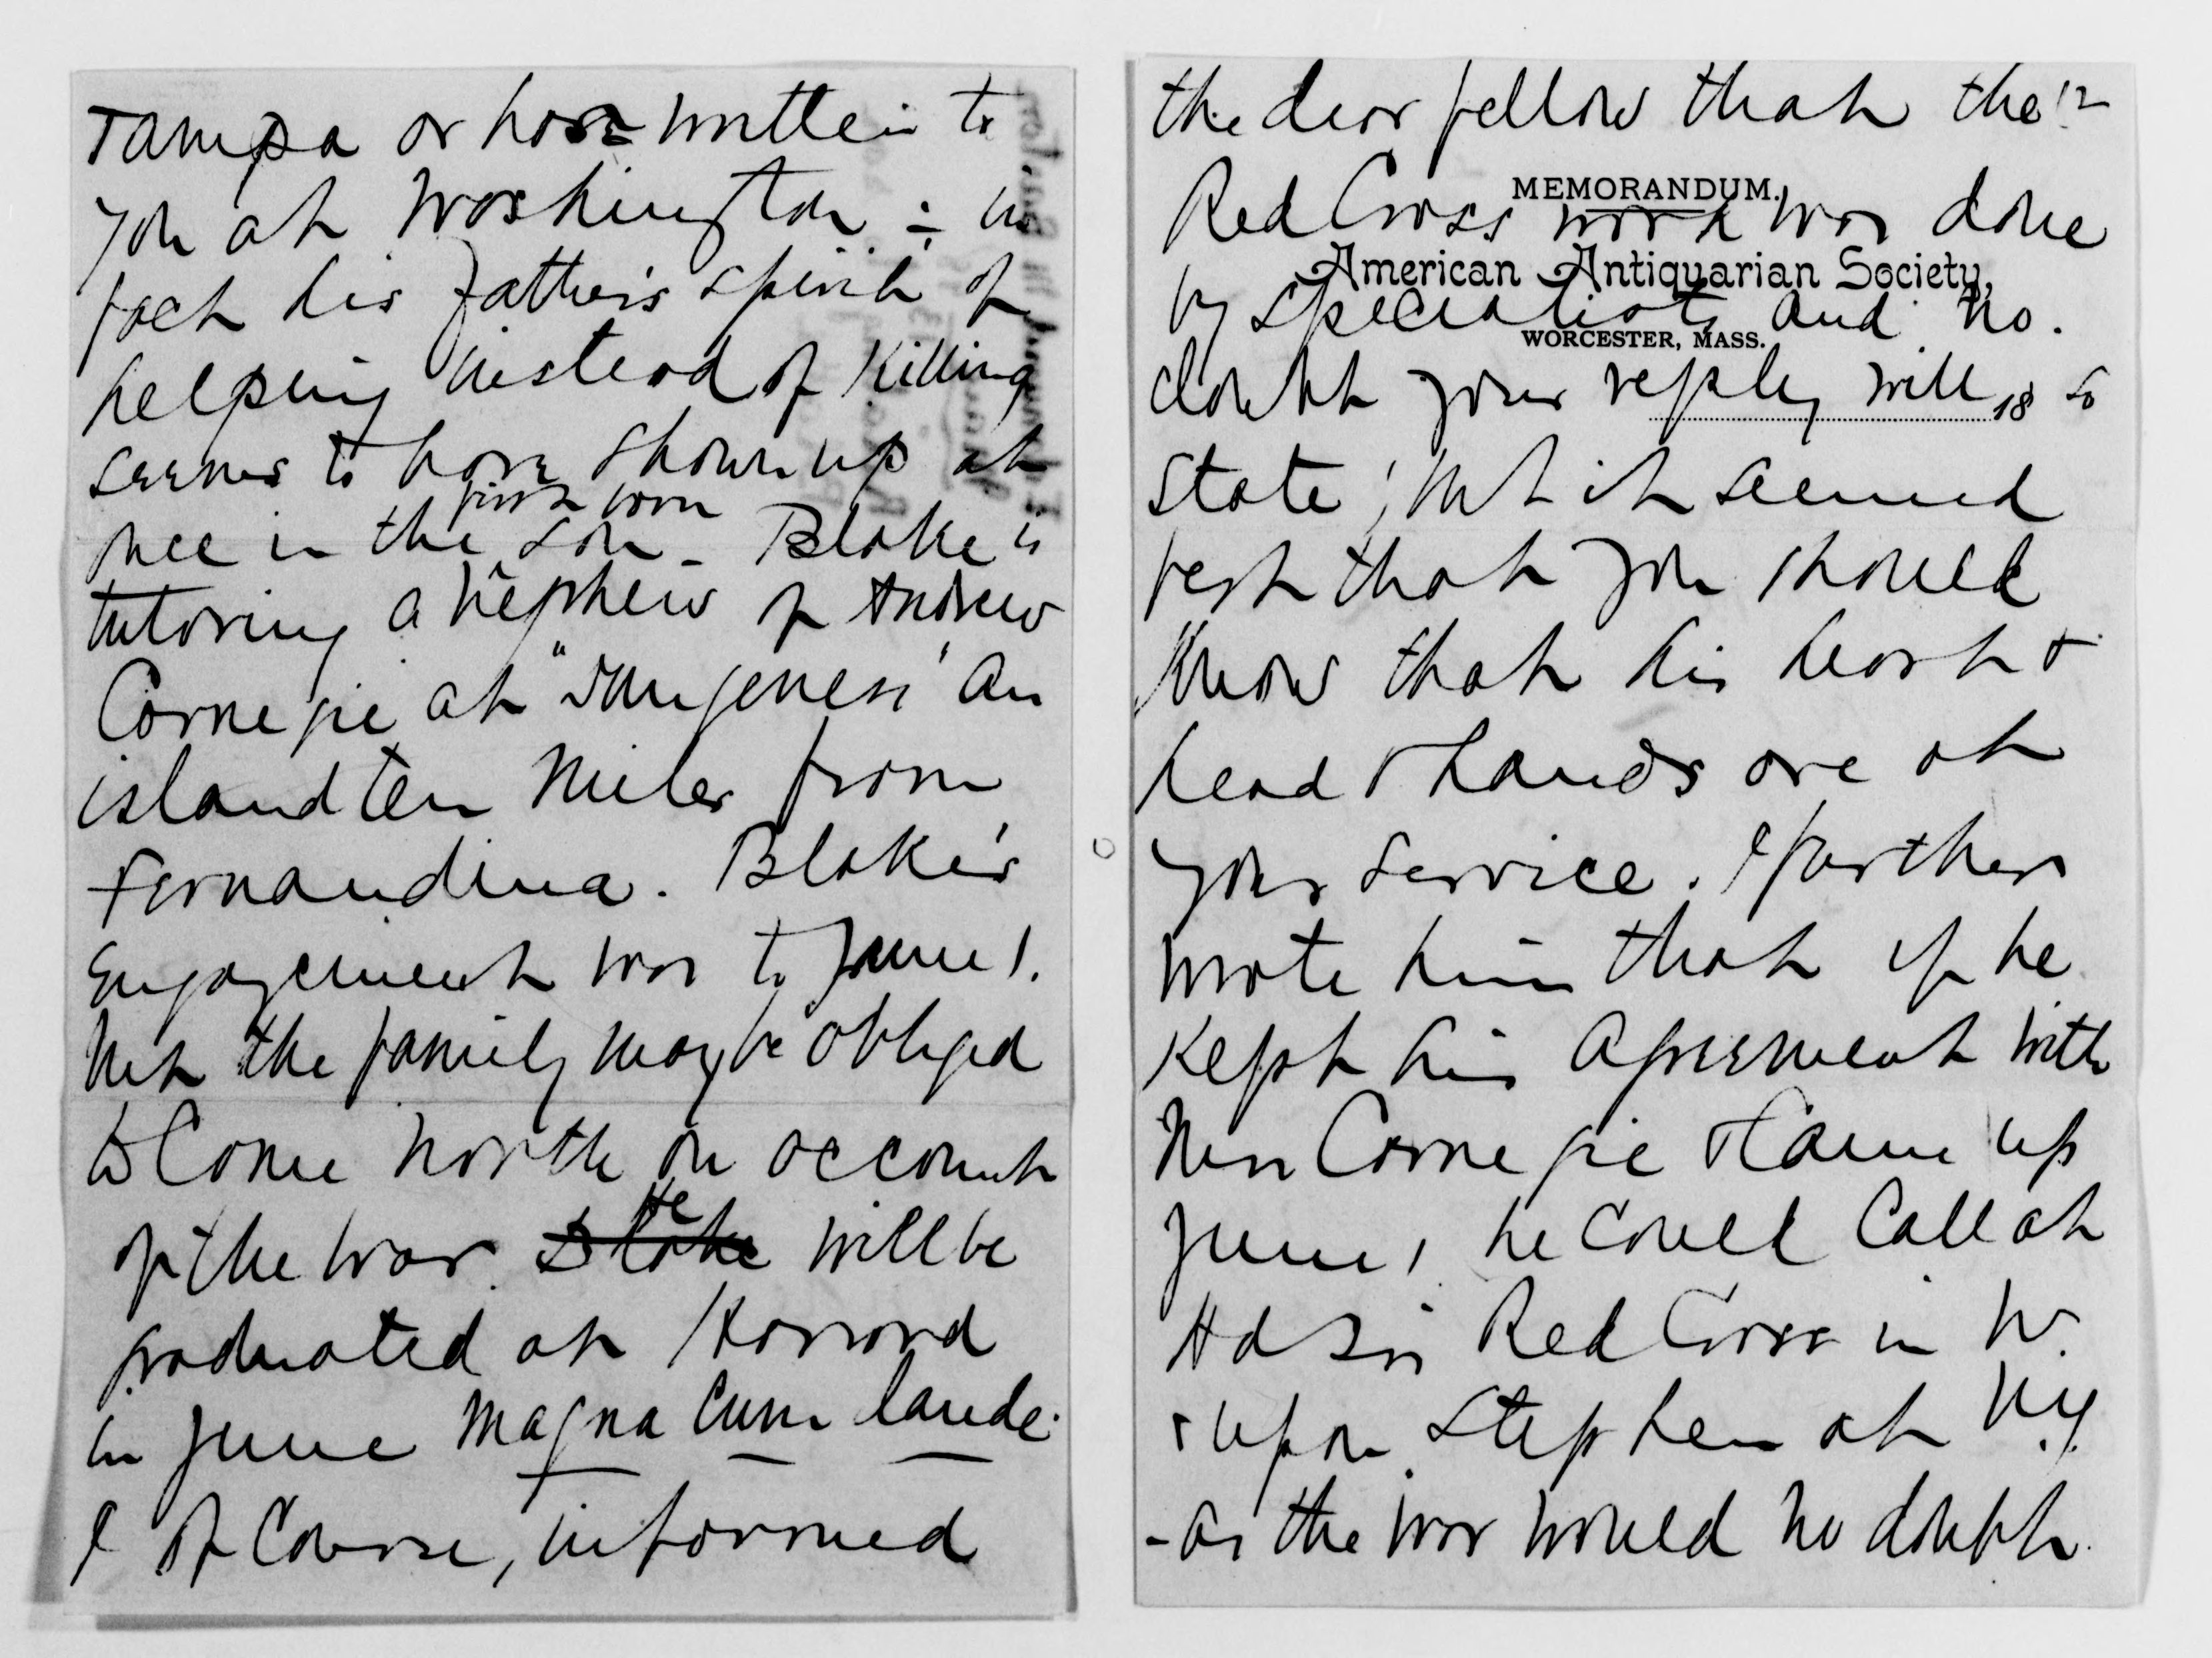 Tampa or have written to
you at Washington - in
fact his father's spirit of
helping instead of killing
seems to have shown up at
once in the first born son - Blake is
tutoring a nephew of Andrew
Carnegie at "Dungeness" an
island ten miles from
Fernandina. Blake's
engagement was to June 1.
but the family may be obliged
to come north on account
of the war. Blake He will be
graduated at Harvard
in June magna cum laude.
I of course, informed
the dear fellow that the
12
MEMORANDUM.
Red Cross work was done
American Antiquarian Society,
by specialists and no
WORCESTER, MASS.
doubt your reply will so
18
state; but it seemed
best that you should
know that his heart &
head & hands are at
your service. I further
wrote him that if he
kept his agreement with
Mrs Carnegie & came up
June 1 he could call at
Hd Qrs Red Cross in W.
& upon Stephen at N.Y.
- as the war would no doubt